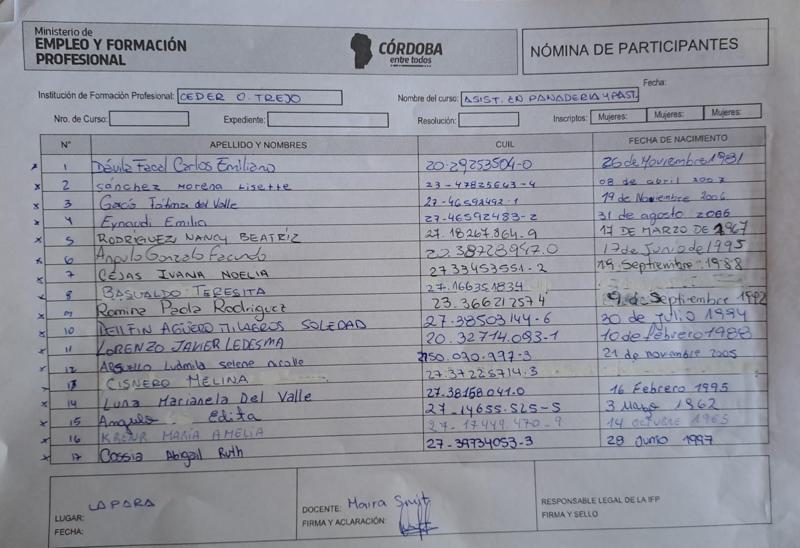 Ministerio de
EMPLEO Y FORMACIÓN
PROFESIONAL
CÓRDOBA
entre todos
NÓMINA DE PARTICIPANTES
Fecha:
Institución de Formación Profesional: CEDER O. TREJO
Nombre del curso: ASIST. EN PANADERIA Y PAST.
Nro. de Curso:
Expediente:
Resolución:
Inscriptos: Mujeres: Mujeres: Mujeres:
N° APELLIDO Y NOMBRES CUIL FECHA DE NACIMIENTO
1 Dávila Facal Carlos Emiliano 20-29253504-0 26 de Noviembre 1981
2 Sánchez Morena Lisette 23-47825643-4 08 de abril 2007
3 Fátima del Valle 27-46592492-1 19 de Noviembre 2006
4 Eynaudi Emilia 27-46592483-2 31 de agosto 2006
5 RODRIGUEZ NANCY BEATRIZ 27.18267.364-9 17 DE MARZO DE 1967
6 Angulo Gonzalo Facundo 20.38728947.0 17 de Junio de 1995
7 CEJAS IVANA NOELIA 2733453551-2 19 Septiembre 1988
8 BASUALDO TERESITA 27.166351834
9 Romina Paola Rodriguez 23.36621257 4 9 de Septiembre
10 DELFIN AGÜERO MILAGROS SOLEDAD 27-38503144-6 30 de Julio 1994
11 LORENZO JAVIER LEDESMA 20.32714.083-1 10 de febrero 1988
12 Ludmila selene 21 de noviembre 2005
13 CISNERO MELINA 27.37225714.3
14 Luna Marianela Del Valle 27.38158041.0 16 Febrero 1995
15 Angulo Edita 27-14655.525-5 3 Mayo 1962
16 MARÍA AMELIA 27-17449.470-9 14 octubre 1965
17 Cossia Abigail Ruth 27-39734053-3 29 Junio 1997
LUGAR: LA PARA
FECHA:
DOCENTE: Maira
FIRMA Y ACLARACIÓN:
RESPONSABLE LEGAL DE LA IFP
FIRMA Y SELLO